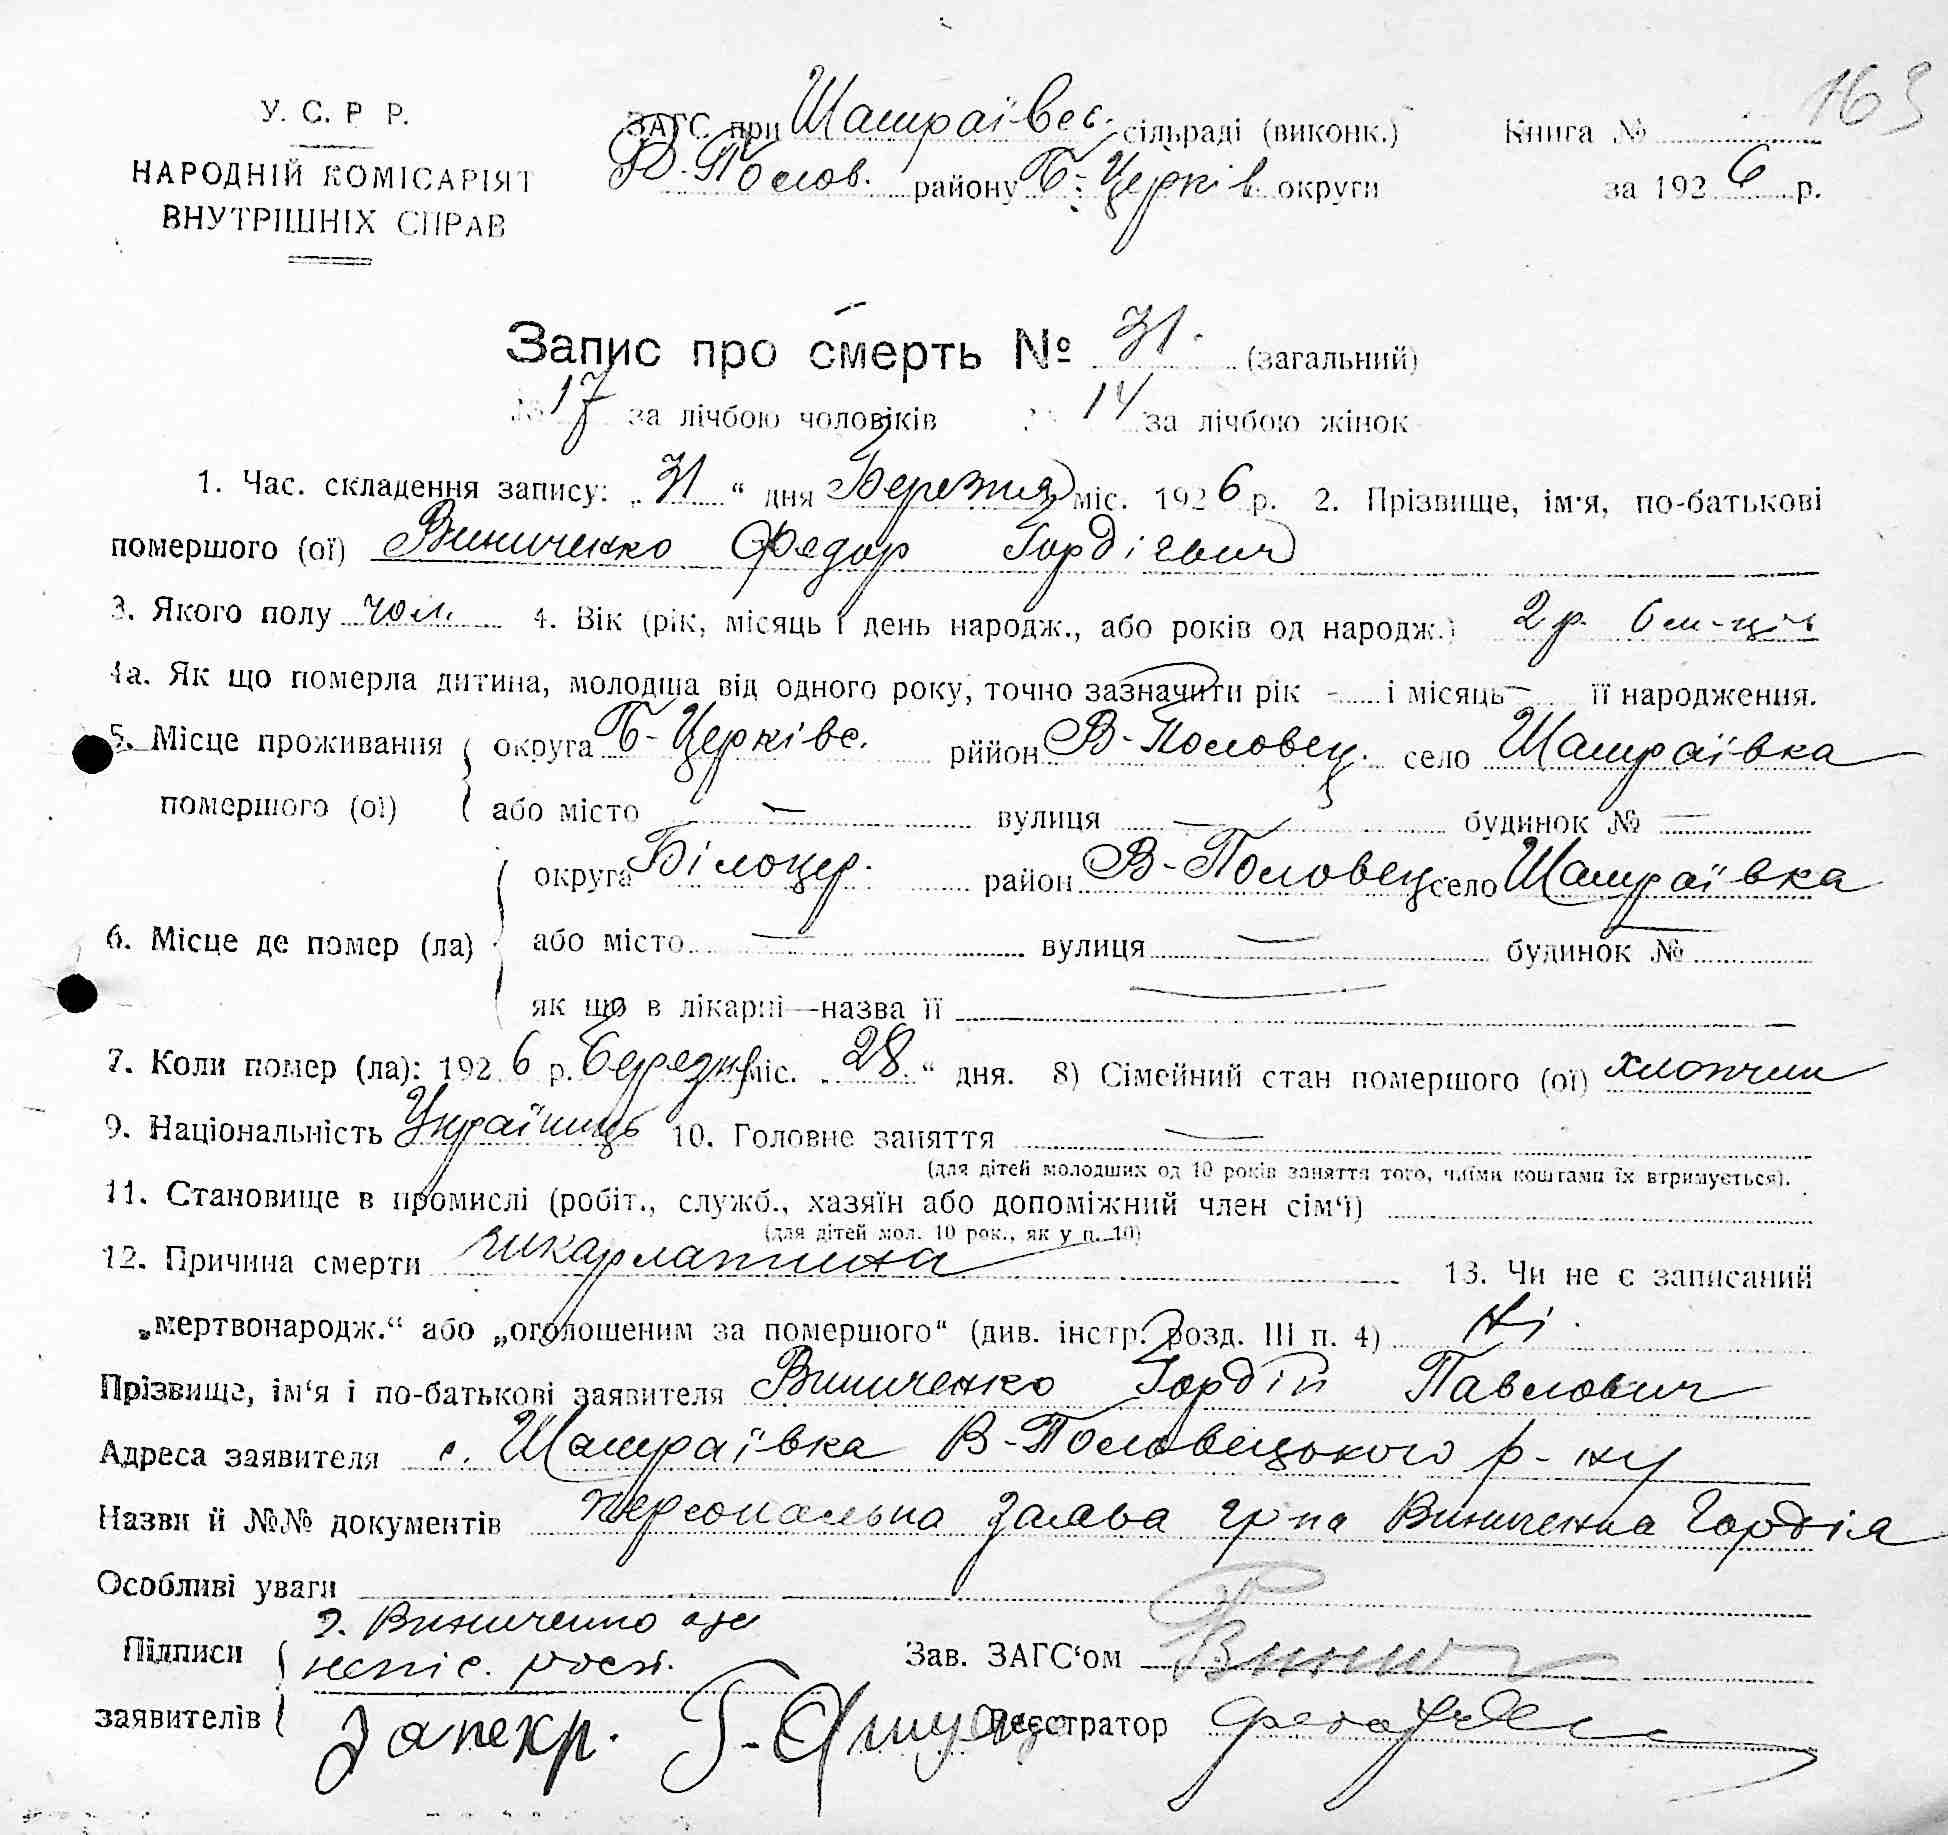 163
У. С. Р Р.
НАРОДНІЙ КОМІСАРІЯТ
ВНУТРІШНІХ СПРАВ
ЗАГС при Шамраївес. сільраді (виконк.) Книга №
В-Полов. району Б-Церків округи за 1926 р.
Запис про смерть № 31. (загальний)
№ 17 за лічбою чоловіків № 14 за лічбою жінок
1. Час. складення запису: „31“ дня Березня міс. 1926 р. 2. Прізвище, ім'я, по-батькові
помершого (ої) Виниченко Федор Гордієвич
3. Якого полу чол. 4. Вік (рік, місяць і день народж., або років од народж.) 2 р. 6 м-ців
4а. Як що померла дитина, молодша від одного року, точно зазначити рік - і місяць — її народження.
5. Місце проживання округа Б-Церківс. рййон В-Половец. село Шамраївка
помершого (ої) або місто — вулиця — будинок № —
округа Білоцер. район В-Половец село Шамраївка
6. Місце де помер (ла) або місто — вулиця — будинок №
як що в лікарні—назва її —
7. Коли помер (ла): 1926 р. Березня міс. „28“ дня. 8) Сімейний стан помершого (ої) хлопчик
9. Національність Українець 10. Головне заняття —
(для дітей молодших од 10 років заняття того, чиїми коштами їх втримується).
11. Становище в промислі (робіт., служб., хазяїн або допоміжний член сім'ї)
(для дітей мол. 10 рок., як у п. 10)
12. Причина смерти шкарлатина 13. Чи не є записаний
„мертвонародж.“ або „оголошеним за помершого“ (див. інстр. розд. III п. 4) Ні.
Прізвище, ім'я і по-батькові заявителя Виниченко Гордій Павлович
Адреса заявителя с. Шамраївка В-Половецького р-ну
Назви й №№ документів персональна заява гр-на Виниченка Гордія
Особливі уваги
Г. Виниченко а
Підписи Зав. ЗАГС'ом Винич
заявителів Реєстратор